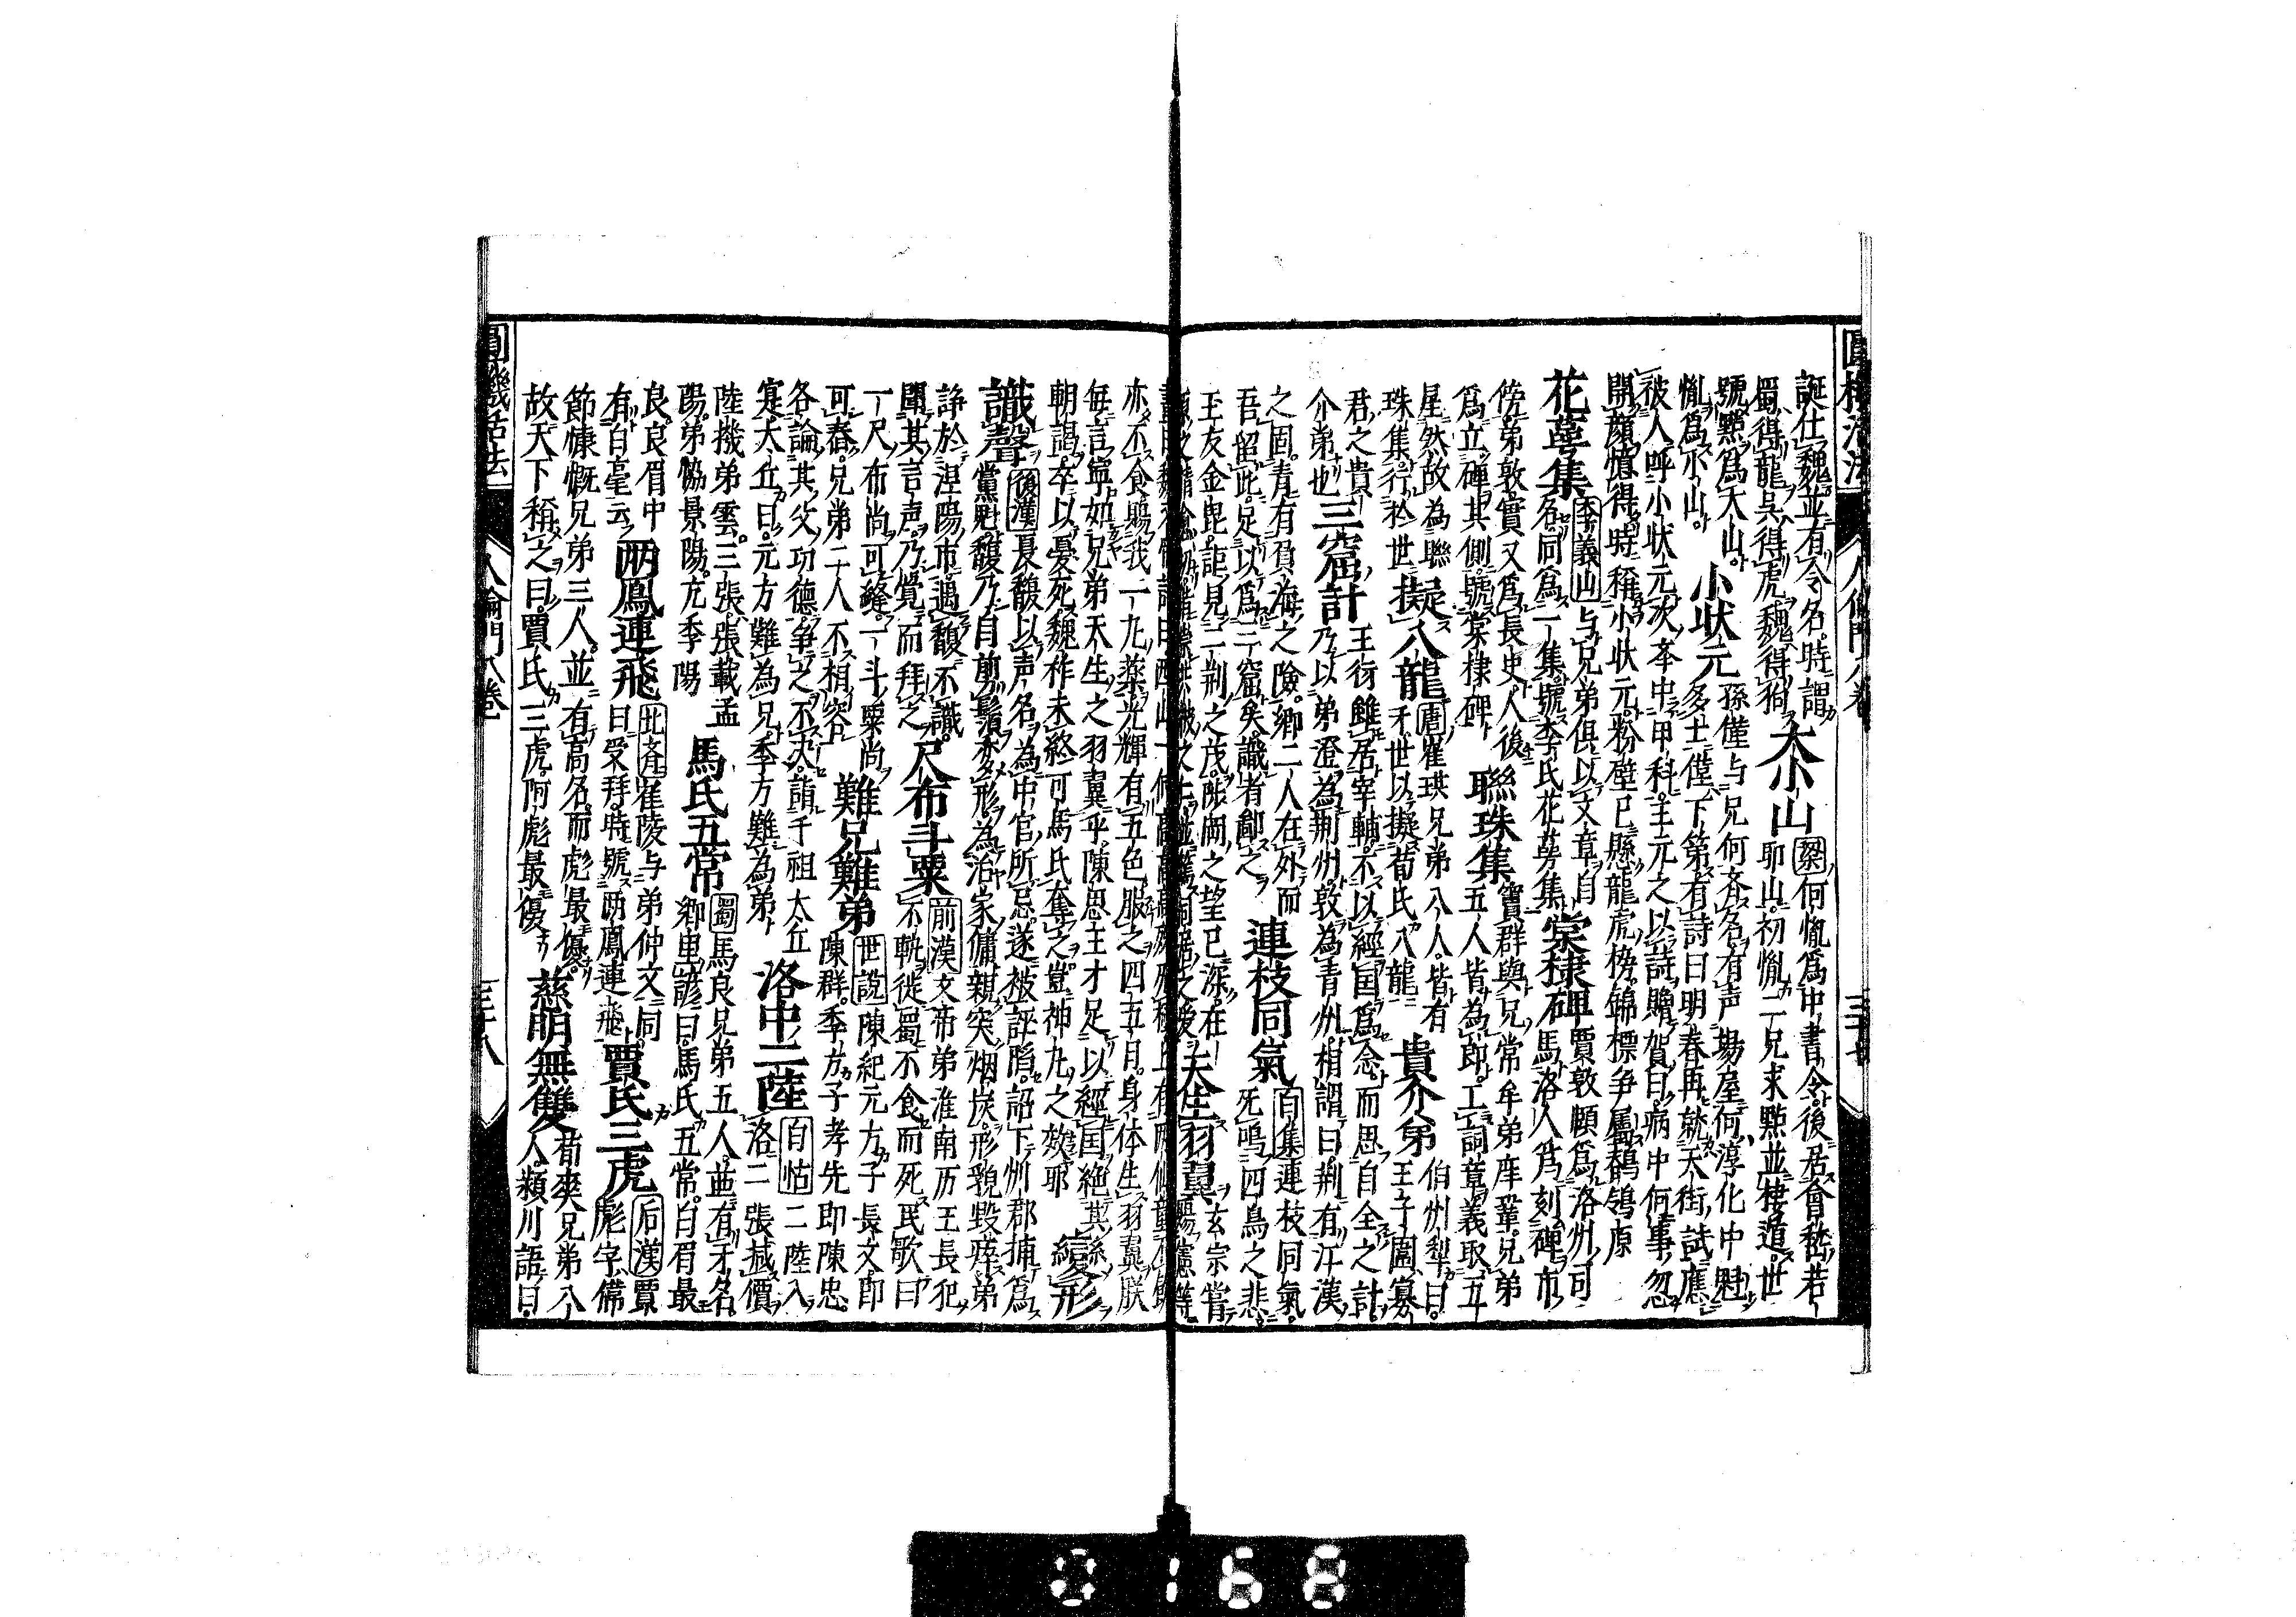 誕仕魏並有令名時謂
蜀得龍吳得虎魏得狗
大小山
梁何胤爲中書令後居會嵆若
耶山初胤二兄求點並棲遁世
號點爲大山
胤爲小山
小狀元
孫僅与兄何斉名有声場屋何淳化中魁
多士僅下第有詩曰明春再棘天街試應
被人呼小狀元次夲中甲科王元之以詩贈賀曰病中何事忽
開顔憶得時稱小狀元粉壁已懸龍虎榜錦標争屬鶺鴒原
花萼集
李義山与兄弟俱以文章自
名同爲一集號李氏花萼集
棠棣碑
賈敦頥爲洛州司
馬洛人爲刻碑市
傍弟敦實又爲長史人後
爲立碑其側號棠棣碑
聯珠集
竇群與兄常牟弟庠鞏兄弟
五人皆為郎工詞章義取五
星然故為聯
珠集行於世
擬八龍
唐崔珙兄弟八人皆有
才世以擬荀氏八龍
貴介弟
伯州犁曰
王子圍寡
君之貴
介弟也
三窟計
王衍雖居宰輔不以經国爲念而思自全之計
乃以弟澄為荆州敦為青州相謂曰荆有江漢
之固青有負海之險卿二人在外而
吾留此足以爲三窟矣識者鄙之
連枝同氣
百集連枝同氣
死鳴四鳥之悲
王友金昆詎見三荆之茂陟岡之望已深在
天生羽翼
玄宗嘗
賜憲等
亦不食賜我一九薬光輝有五色服之四五日身体生羽翼朕
毎言寧如兄弟天生之羽翼乎陳思王才足以經国絶其
朝謁卒以憂死魏祚未終司馬氏奪之豈神九之效耶
變形
識聲
後漢長馥以声名為中官所忌遂被評陷詔下州郡捕爲
黨魁馥乃自剪鬚変形為治家傭親突烟炭形貌毀瘁弟
静於涅陽市遇馥不識
聞其言声乃覺而拜之
尺布斗粟
前漢文帝弟淮南厉王長犯
不軌徙蜀不食而死民歌曰
一尺布尚可縫一斗粟尚
可舂兄弟二人不相容
難兄難弟
世說陳紀元方子長文即
陳群季方子孝先即陳忠
各論其父功德争之不决請千祖太丘
寔太丘曰元方難為兄季方難為弟
洛中二陸
白帖二陸入
洛二張減價
陸機弟雲三張張載孟
陽弟恊景陽亢季陽
馬氏五常
蜀馬良兄弟五人並有才名
鄉里諺曰馬氏五常白眉最
良良眉中
有白毫云
两鳳連飛
北斉崔陵与弟仲文同
日受拜時號两鳳連飛
賈氏三虎
后漢賈
彪字偉
節慷慨兄弟三人並有高名而彪最優
故天下稱之曰賈氏三虎阿彪最優
慈明無雙
荀爽兄弟八
人潁川語曰
圓機活法
人倫門八卷
三十七
圓機活法
人倫門八卷
三十八
0168